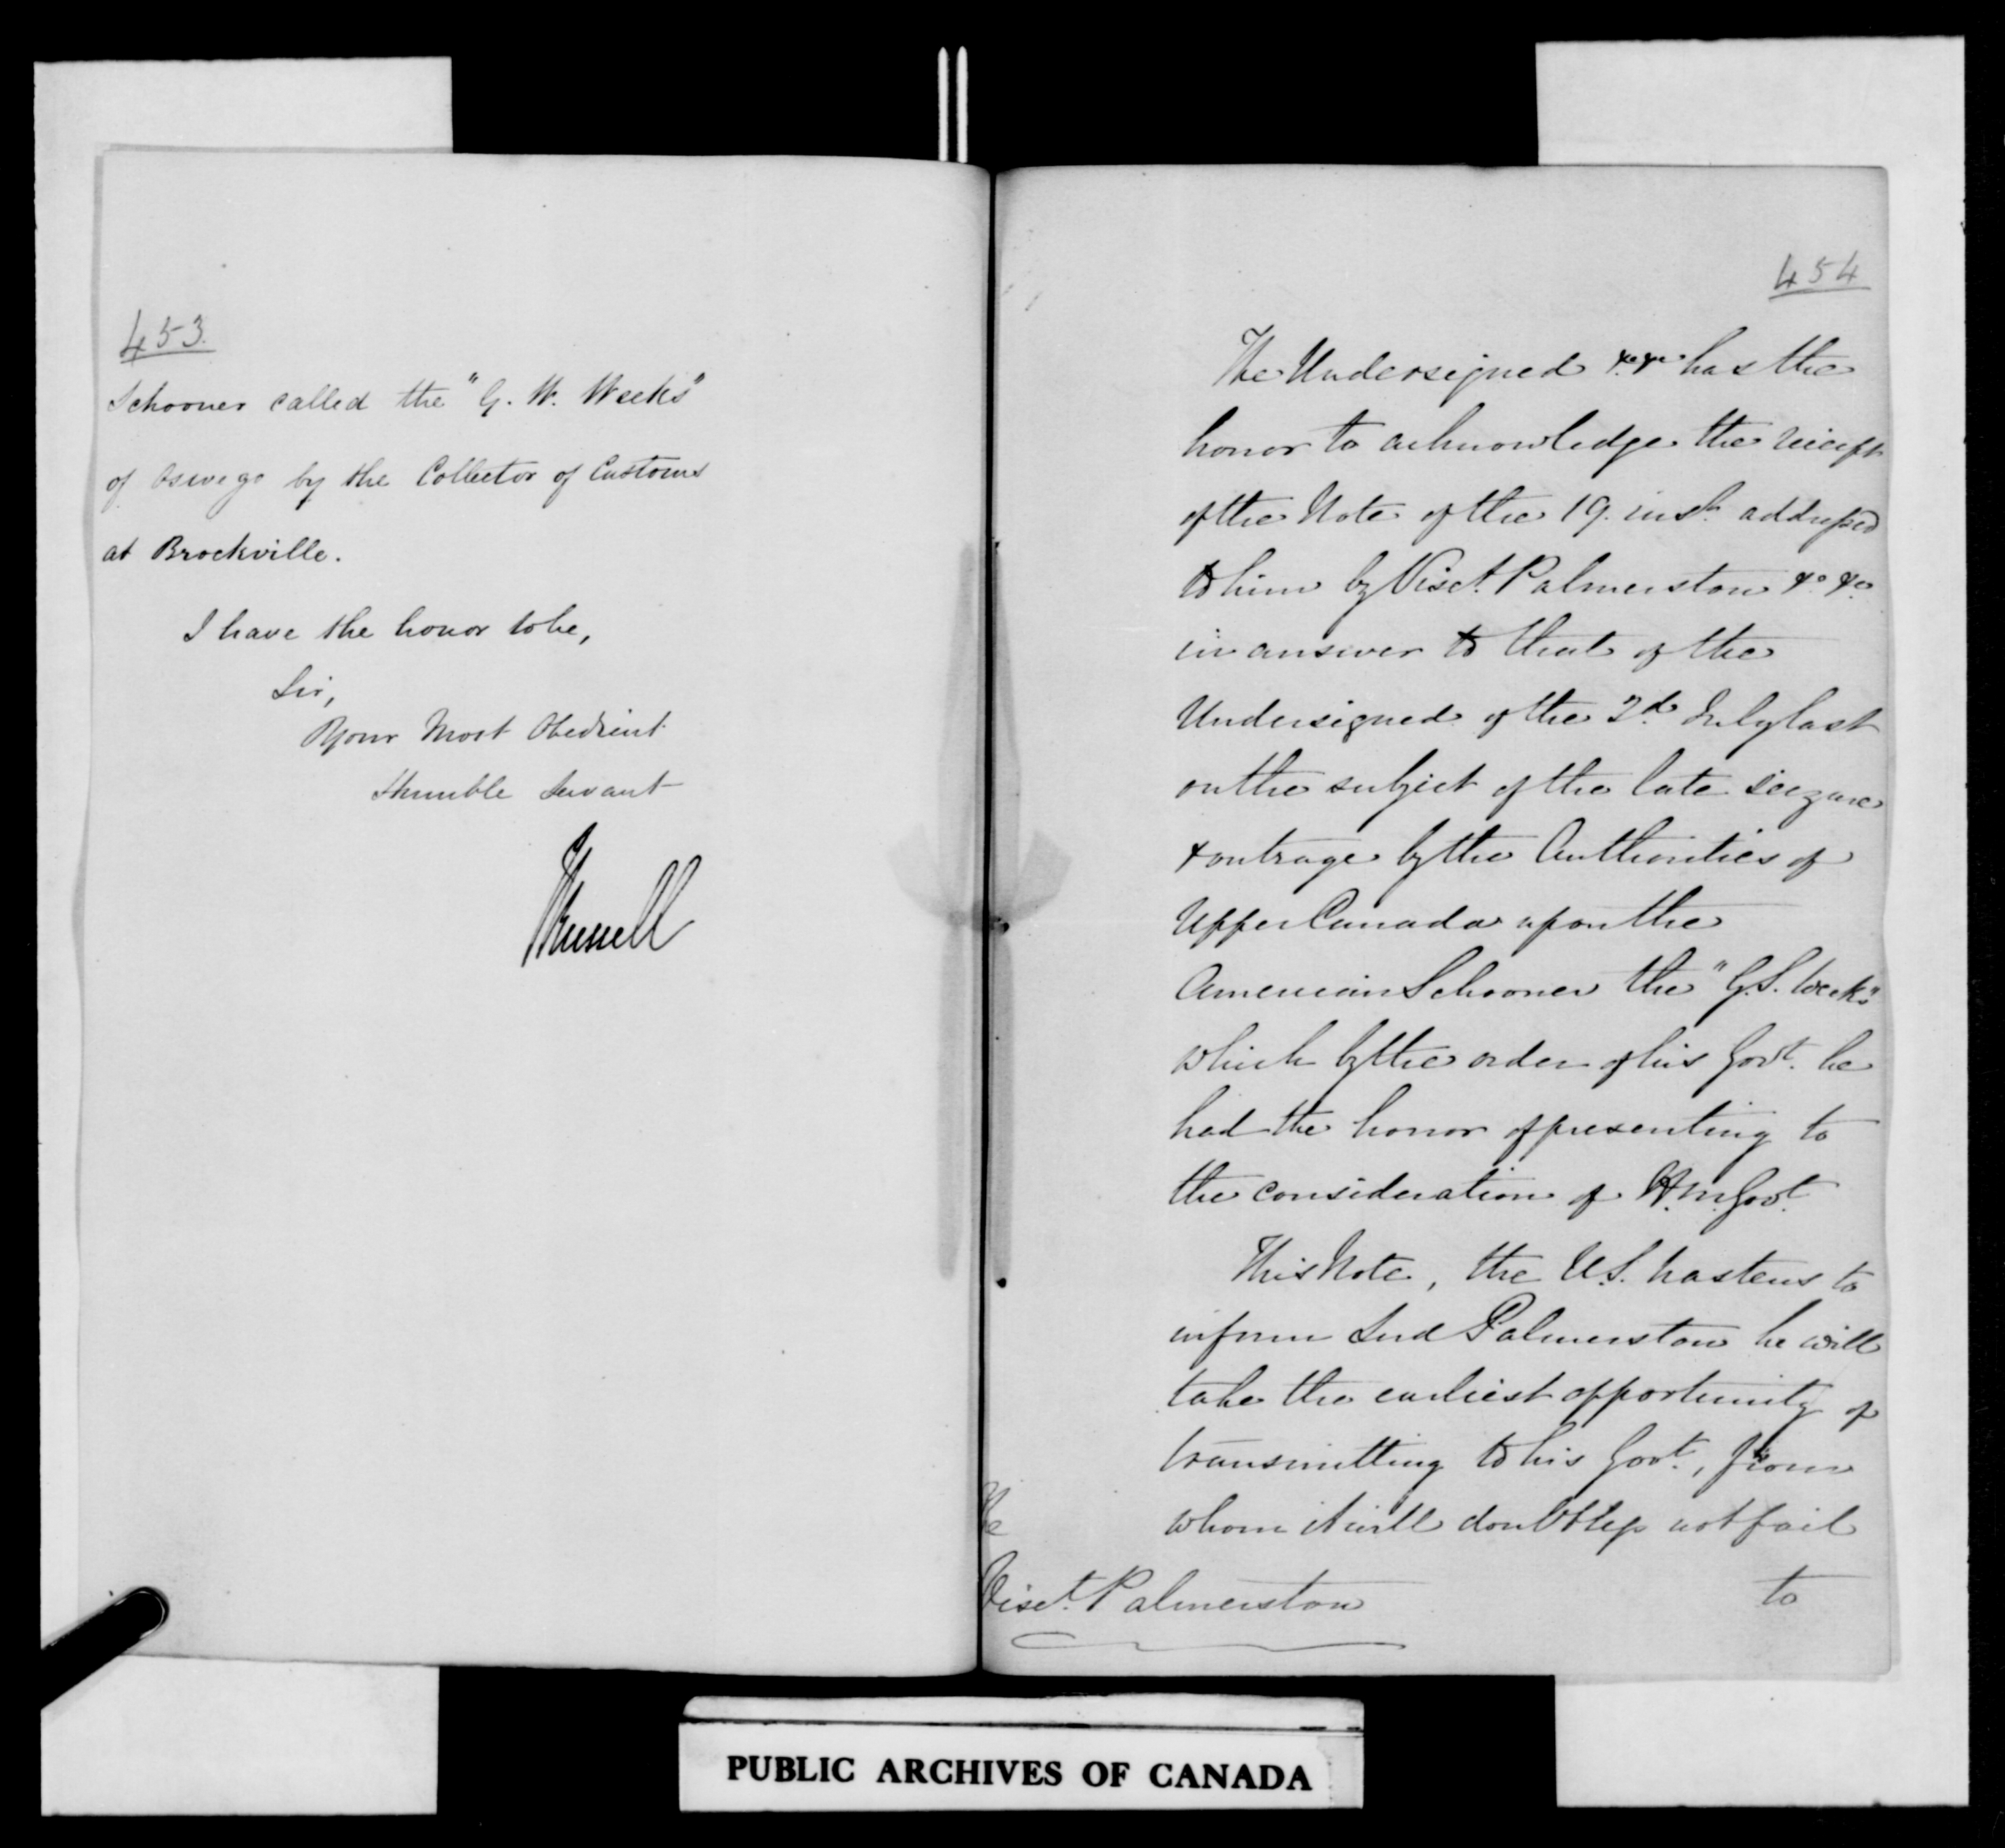 453.
Schooner called the "G. W. Weeks"
of Oswego by the Collector of Customs
at Brockville.
I have the honor to be,
Sir,
Your Most Obedient
Humble Servant
JRussell
454
The Undersigned &c &c has the
honor to acknowledge the reciept
of the Note of the 19. inst. addressed
to him by Visct. Palmerston &c &c
in answer to that of the
Undersigned of the 2d. July last
on the subject of the late seizure
& outrage by the Authorities of
Upper Canada upon the
American Schooner the "G.S. Weeks"
which by the order of his Govt. he
had the honor of presenting to
the consideration of H.M. Govt.
This Note, the U.S. hastens to
inform Lord Palmerston he will
take the earliest opportunity of
transmitting to his Govt., from
whom it will doubtless not fail
to
The
Visct. Palmerston
PUBLIC ARCHIVES OF CANADA